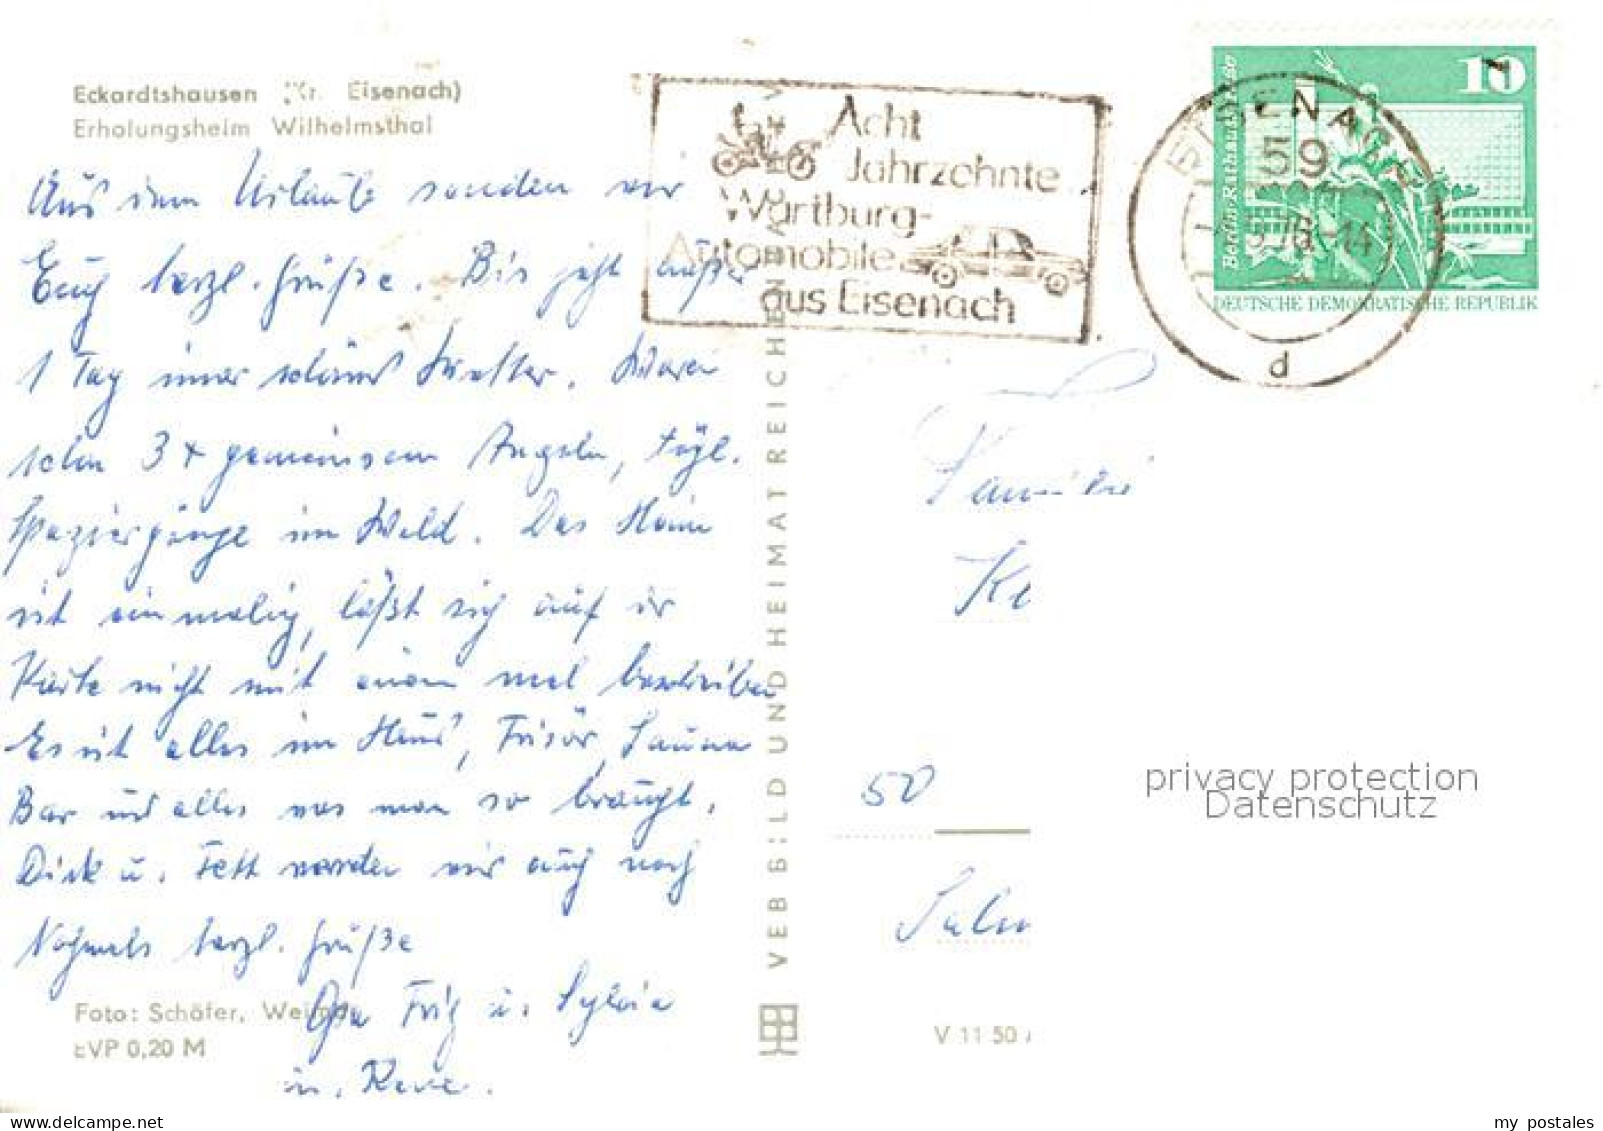 Eckardtshausen (Kr. Eisenach)
Erholungsheim Wilhelmsthal
Aus dem Urlaub senden wir
Euch herzl. Grüße. Bis jetzt außer
1 Tag immer schönes Wetter. Waren
schon 3x gemeinsam Angeln, tägl.
Spaziergänge im Wald. Das Heim
ist einmalig, läßt sich auf der
Karte nicht mit einem mal beschreiben
Es ist alles im Haus, Frisör, Sauna
Bar und alles was man so braucht.
Dick u. Fett werden wir auch noch
Nochmals herzl. Grüße
Opa Fritz u. Sylvia
u. Rene.
Foto: Schäfer, Weimar
EVP 0,20 M
VEB BILD UND HEIMAT REICHENBACH
Acht
Jahrzehnte
Wartburg-
Automobile
aus Eisenach
EISENACH
59
76-14
d
10
Berlin-Rathausstraße
DEUTSCHE DEMOKRATISCHE REPUBLIK
Familie
50
V 11 50
privacy protection
Datenschutz
my postales